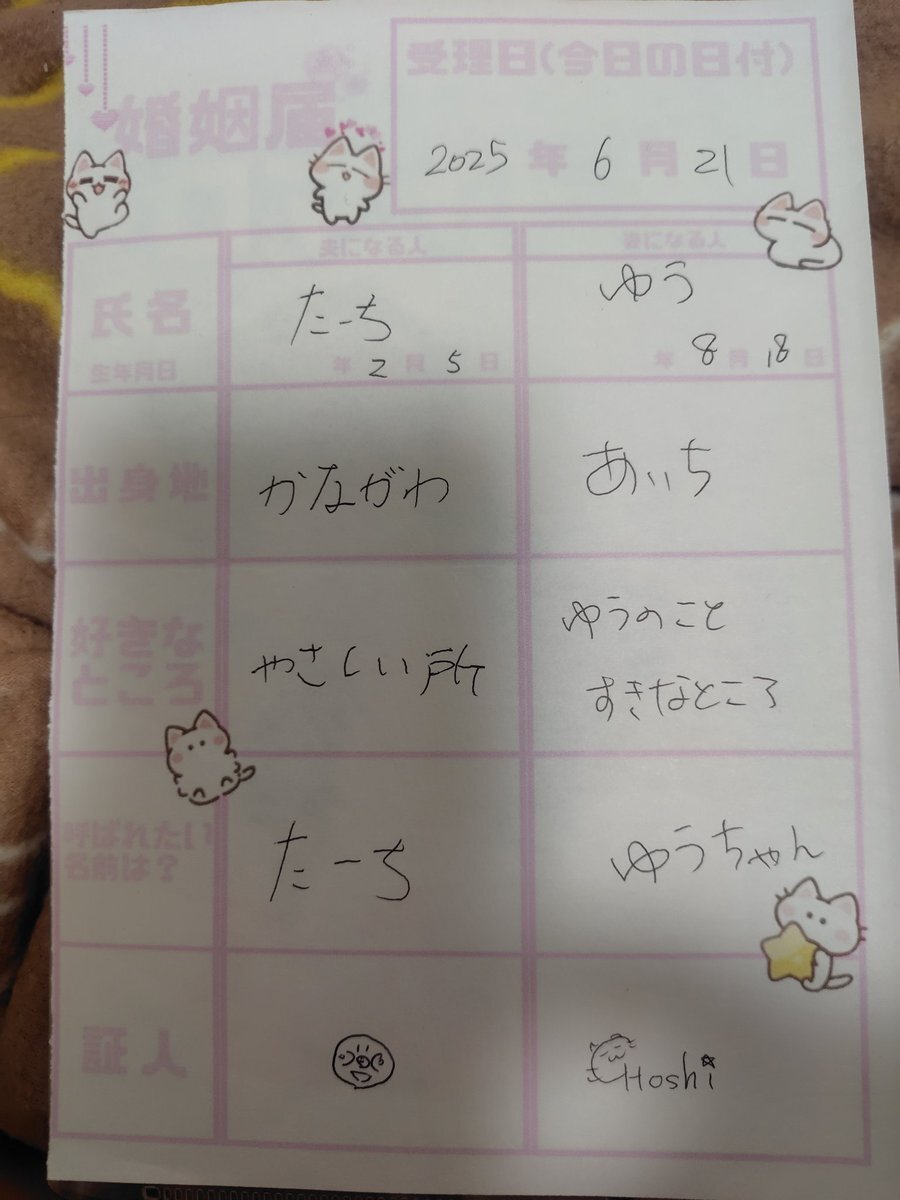 婚姻届
受理日(今日の日付)
2025 年 6 月 21 日
夫になる人
妻になる人
氏名
たーち
ゆう
生年月日
年 2 月 5 日
年 8 月 18 日
出身地
かながわ
あいち
好きな
ところ
やさしい所
ゆうのこと
すきなところ
呼ばれたい
名前は?
たーち
ゆうちゃん
証人
Hoshi